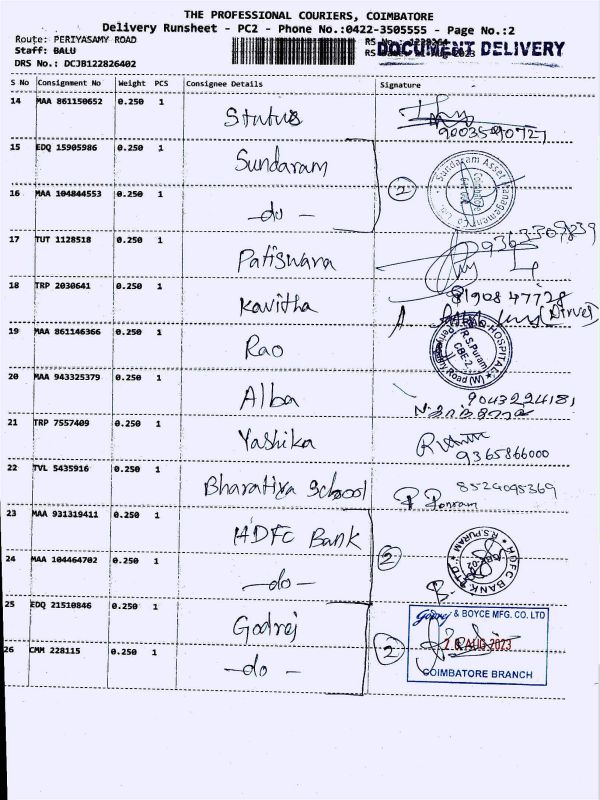 THE PROFESSIONAL COURIERS, COIMBATORE
Delivery Runsheet - PC2 - Phone No.:0422-3505555 - Page No.:2
Route: PERIYASAMY ROAD
Staff: BALU
DRS No.: DCJB122826402
DOCUMENT DELIVERY
S No Consignment No Weight PCS Consignee Details Signature
14 MAA 861150652 0.250 1 Status 9003590727
15 EDQ 15905986 0.250 1 Sundaram
16 MAA 104844553 0.250 1 -do- 2 Sundaram Asset Management Co
17 TUT 1128518 0.250 1 Patiswara 9363309839
18 TRP 2030641 0.250 1 Kavitha 8190847728
19 MAA 861146366 0.250 1 Rao HOSPITAL R.S.Puram CBE-2 Road (W)
20 MAA 943325379 0.250 1 Alba 9043224181
21 TRP 7557409 0.250 1 Yashika 9365866000
22 TVL 5435916 0.250 1 Bharatiya School P Ponram 8524095369
23 MAA 931319411 0.250 1 HDFC Bank
24 MAA 104464702 0.250 1 -do- 2 HDFC BANK LTD R.S.PURAM
25 EDQ 21510846 0.250 1 Godrej Godrej & BOYCE MFG. CO. LTD
26 CMM 228115 0.250 1 -do- 2 AUG 2023
COIMBATORE BRANCH